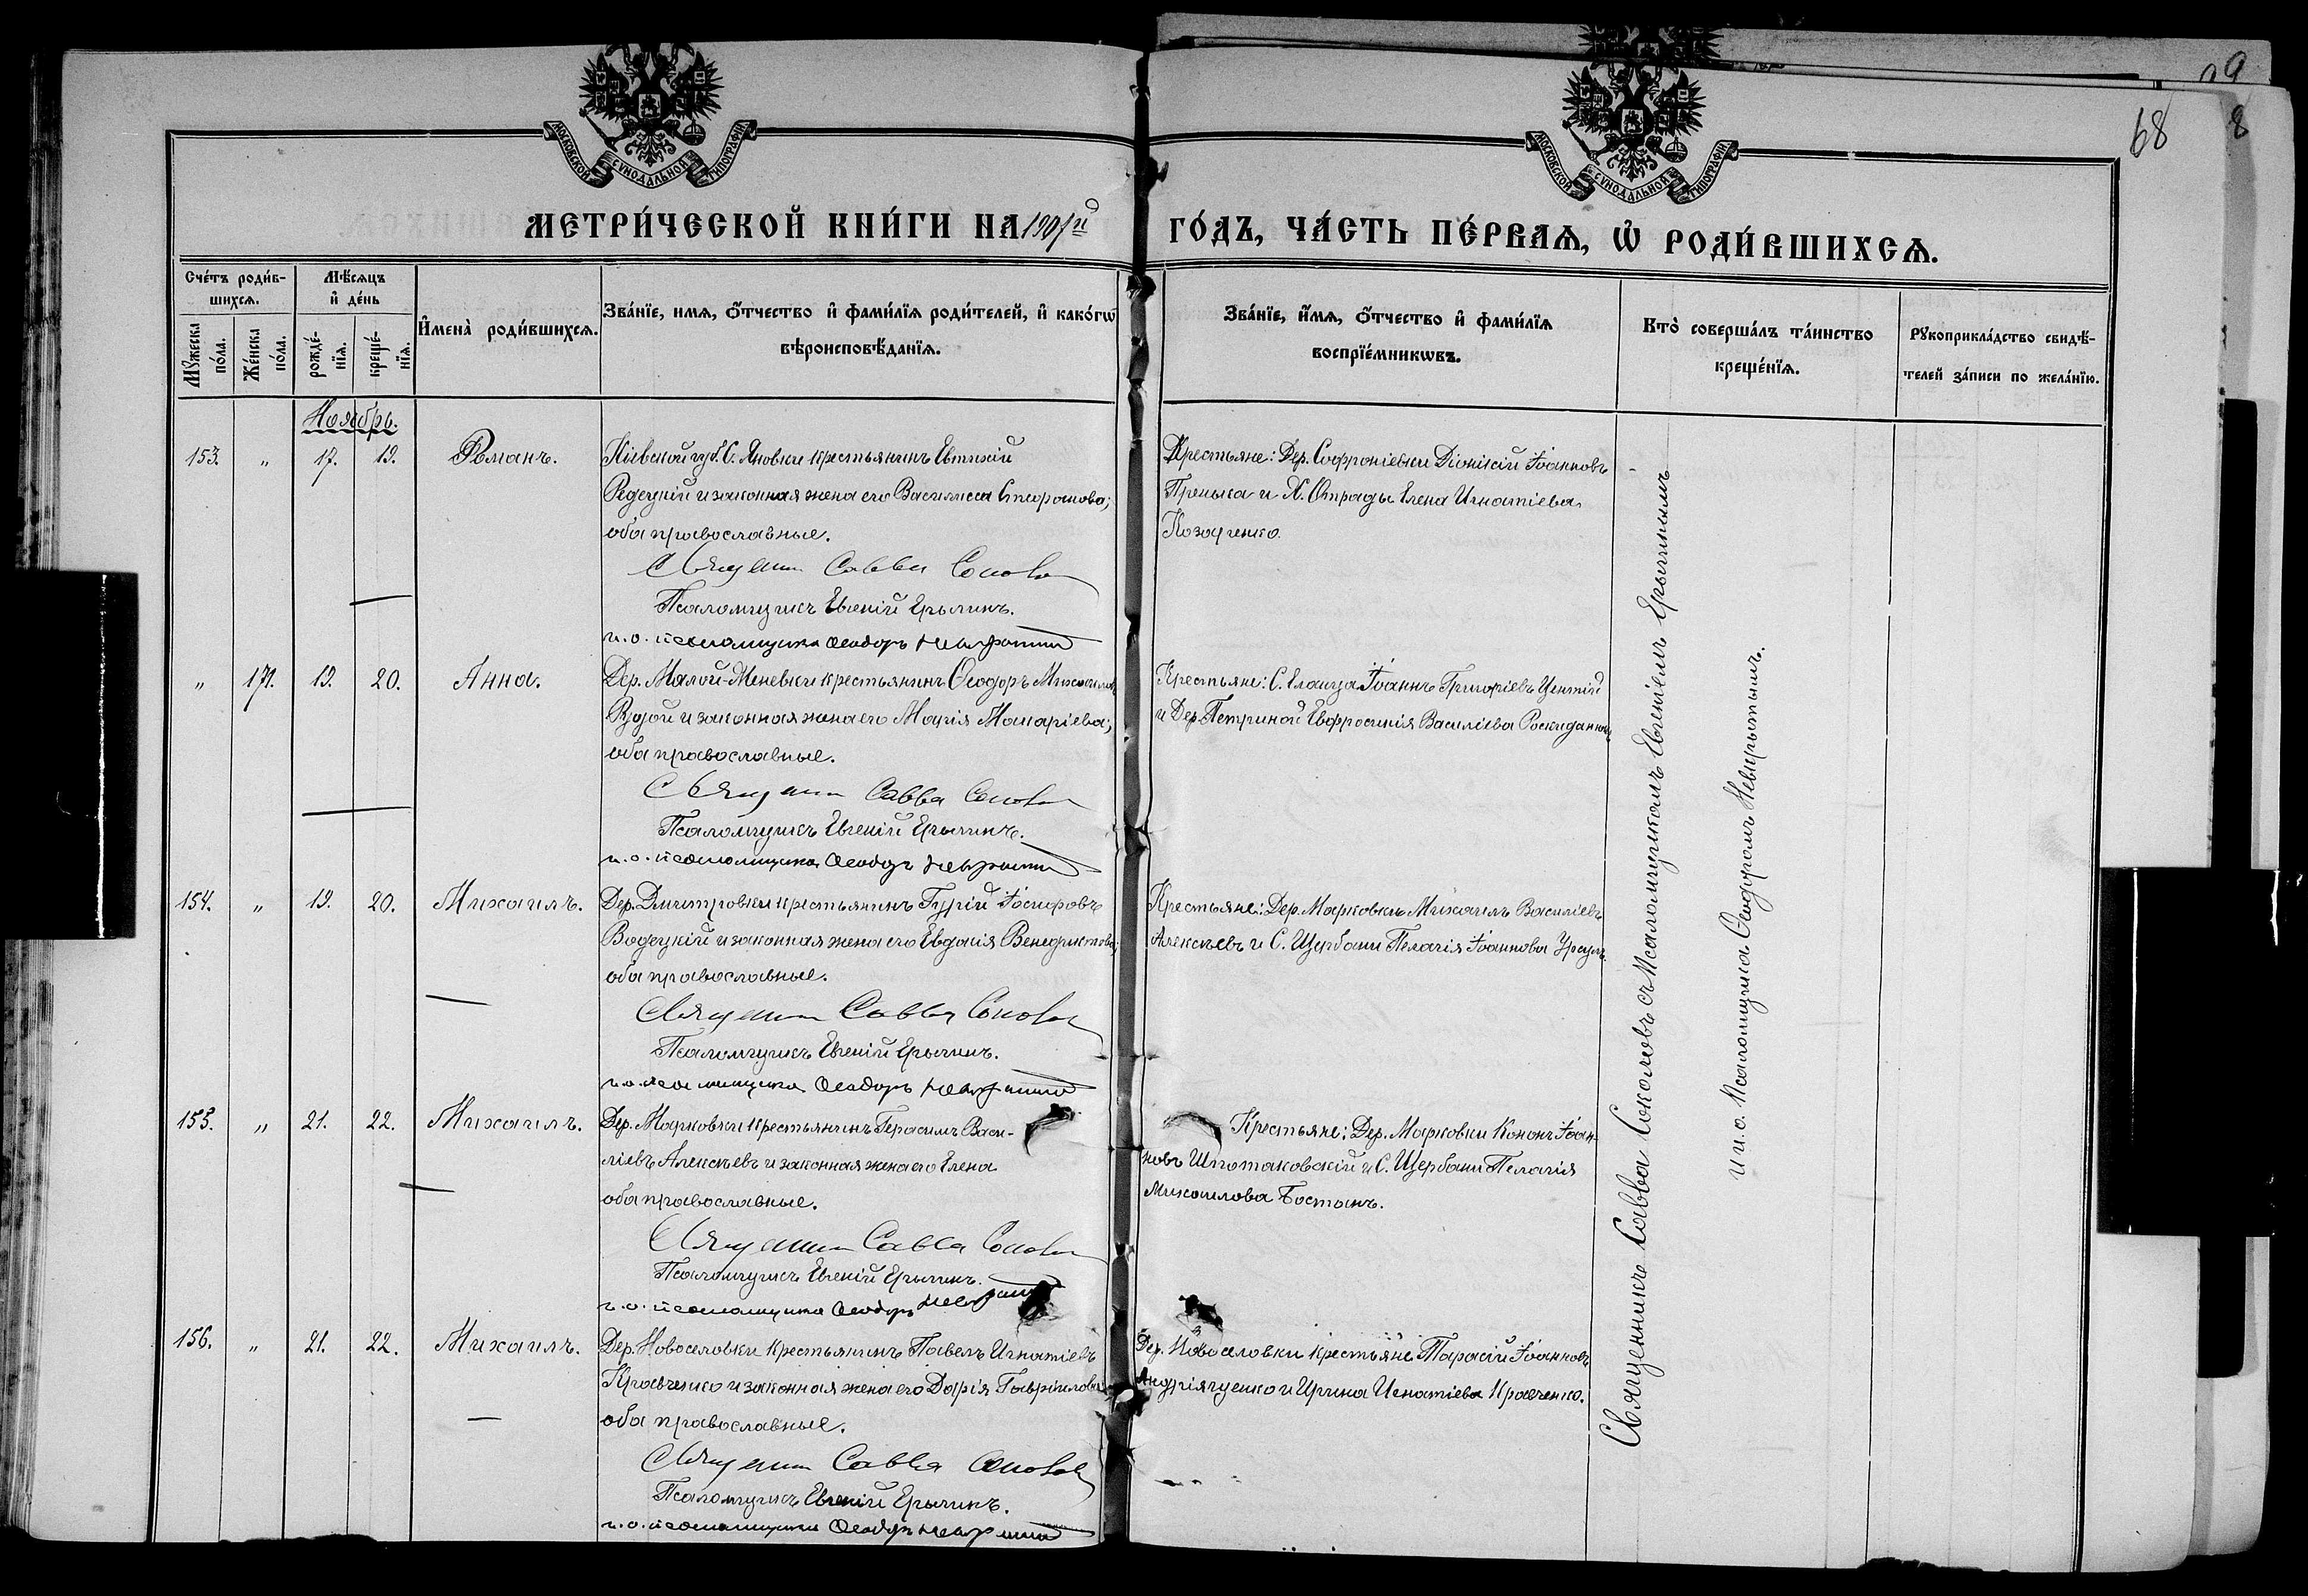 68
9
8
МОСКОВСКОЙ СУНОДАЛЬНОЙ ТИПОГРАФІИ
МОСКОВСКОЙ СУНОДАЛЬНОЙ ТИПОГРАФІИ
МЕТРИ́ЧЕСКОЙ КНИ́ГИ НА 1901й ГО́ДЪ, ЧА́СТЬ ПЕ́РВАѦ, Ѡ҆ РОДИ́ВШИХСѦ.
Сче́тъ роди́в-
шихсѧ.
Мѣ́сѧцъ
и҆ де́нь
Мꙋ́жеска по́ла.
Же́нска по́ла.
рожде́-нїѧ.
креще́-нїѧ.
И҆мена̀ роди́вшихсѧ.
Зва́нїе, имѧ, о҆́тчество и҆ фами́лїѧ роди́телей, и҆ како́гѡ
вѣроисповѣ́данїѧ.
Зва́нїе, и҆́мѧ, о҆́тчество и҆ фами́лїѧ
воспрїе́мникѡвъ.
Кто̀ соверша́лъ та́инство
креще́нїѧ.
Рꙋкоприкла́дство свидѣ́-
телей за́писи по жела́нїю.
Ноябрь.
153. „ 17. 19. Романъ.
Кіевской губ. С. Яновки крестьянинъ Евтихій
Редецкій и законная жена его Василисса Стефанова;
оба православные.
Священникъ Савва Соколовъ
Псаломщикъ Евгеній Ерыгинъ.
и. о. псаломщика Ѳеодоръ
Крестьяне: Дер. Софроніевки Діонисій Іоанновъ
Пренька и Х. Отрады Елена Игнатіева
Козаченко.
„ 171. 19. 20. Анна.
Дер. Малой-Меневки крестьянинъ Ѳеодоръ Михаиловъ
Рудой и законная жена его Марія Макаріева;
оба православные.
Священникъ Савва Соколовъ
Псаломщикъ Евгеній Ерыгинъ.
и. о. псаломщика Ѳеодоръ
Крестьяне: С. Еланца Іоаннъ Григоріевъ
и Дер. Петриной Евфросинія Василіева
154. „ 19. 20. Михаилъ.
Дер. Дмитровки крестьянинъ Гурій Іосифовъ
Водецкій и законная жена его Евдокія Венедиктова;
оба православные.
Священникъ Савва Соколовъ
Псаломщикъ Евгеній Ерыгинъ.
и. о. псаломщика Ѳеодоръ
Крестьяне: Дер. Марковки Михаилъ Василіевъ
Алексѣевъ и С. Щербани Пелагія Іоаннова
155. „ 21. 22. Михаилъ.
Дер. Марковки крестьянинъ Герасимъ Васи-
ліевъ Алексѣевъ и законная жена его Елена
оба православные.
Священникъ Савва Соколовъ
Псаломщикъ Евгеній Ерыгинъ.
и. о. псаломщика Ѳеодоръ
Крестьяне: Дер. Марковки Кононъ Іоан-
новъ Шпотаковскій и С. Щербани Пелагія
Михаилова Бостанъ.
156. „ 21. 22. Михаилъ.
Дер. Новоселовки крестьянинъ Павелъ Игнатіевъ
Кравченко и законная жена его Дарія Гавріилова
оба православные.
Священникъ Савва Соколовъ
Псаломщикъ Евгеній Ерыгинъ.
и. о. псаломщика Ѳеодоръ
Дер. Новоселовки крестьяне Тарасій Іоанновъ
Андріященко и Ирина Игнатіева Кравченко.
Священникъ Савва Соколовъ съ Псаломщикомъ Евгеніемъ Ерыгинымъ
и и. о. Псаломщика Ѳеодоромъ